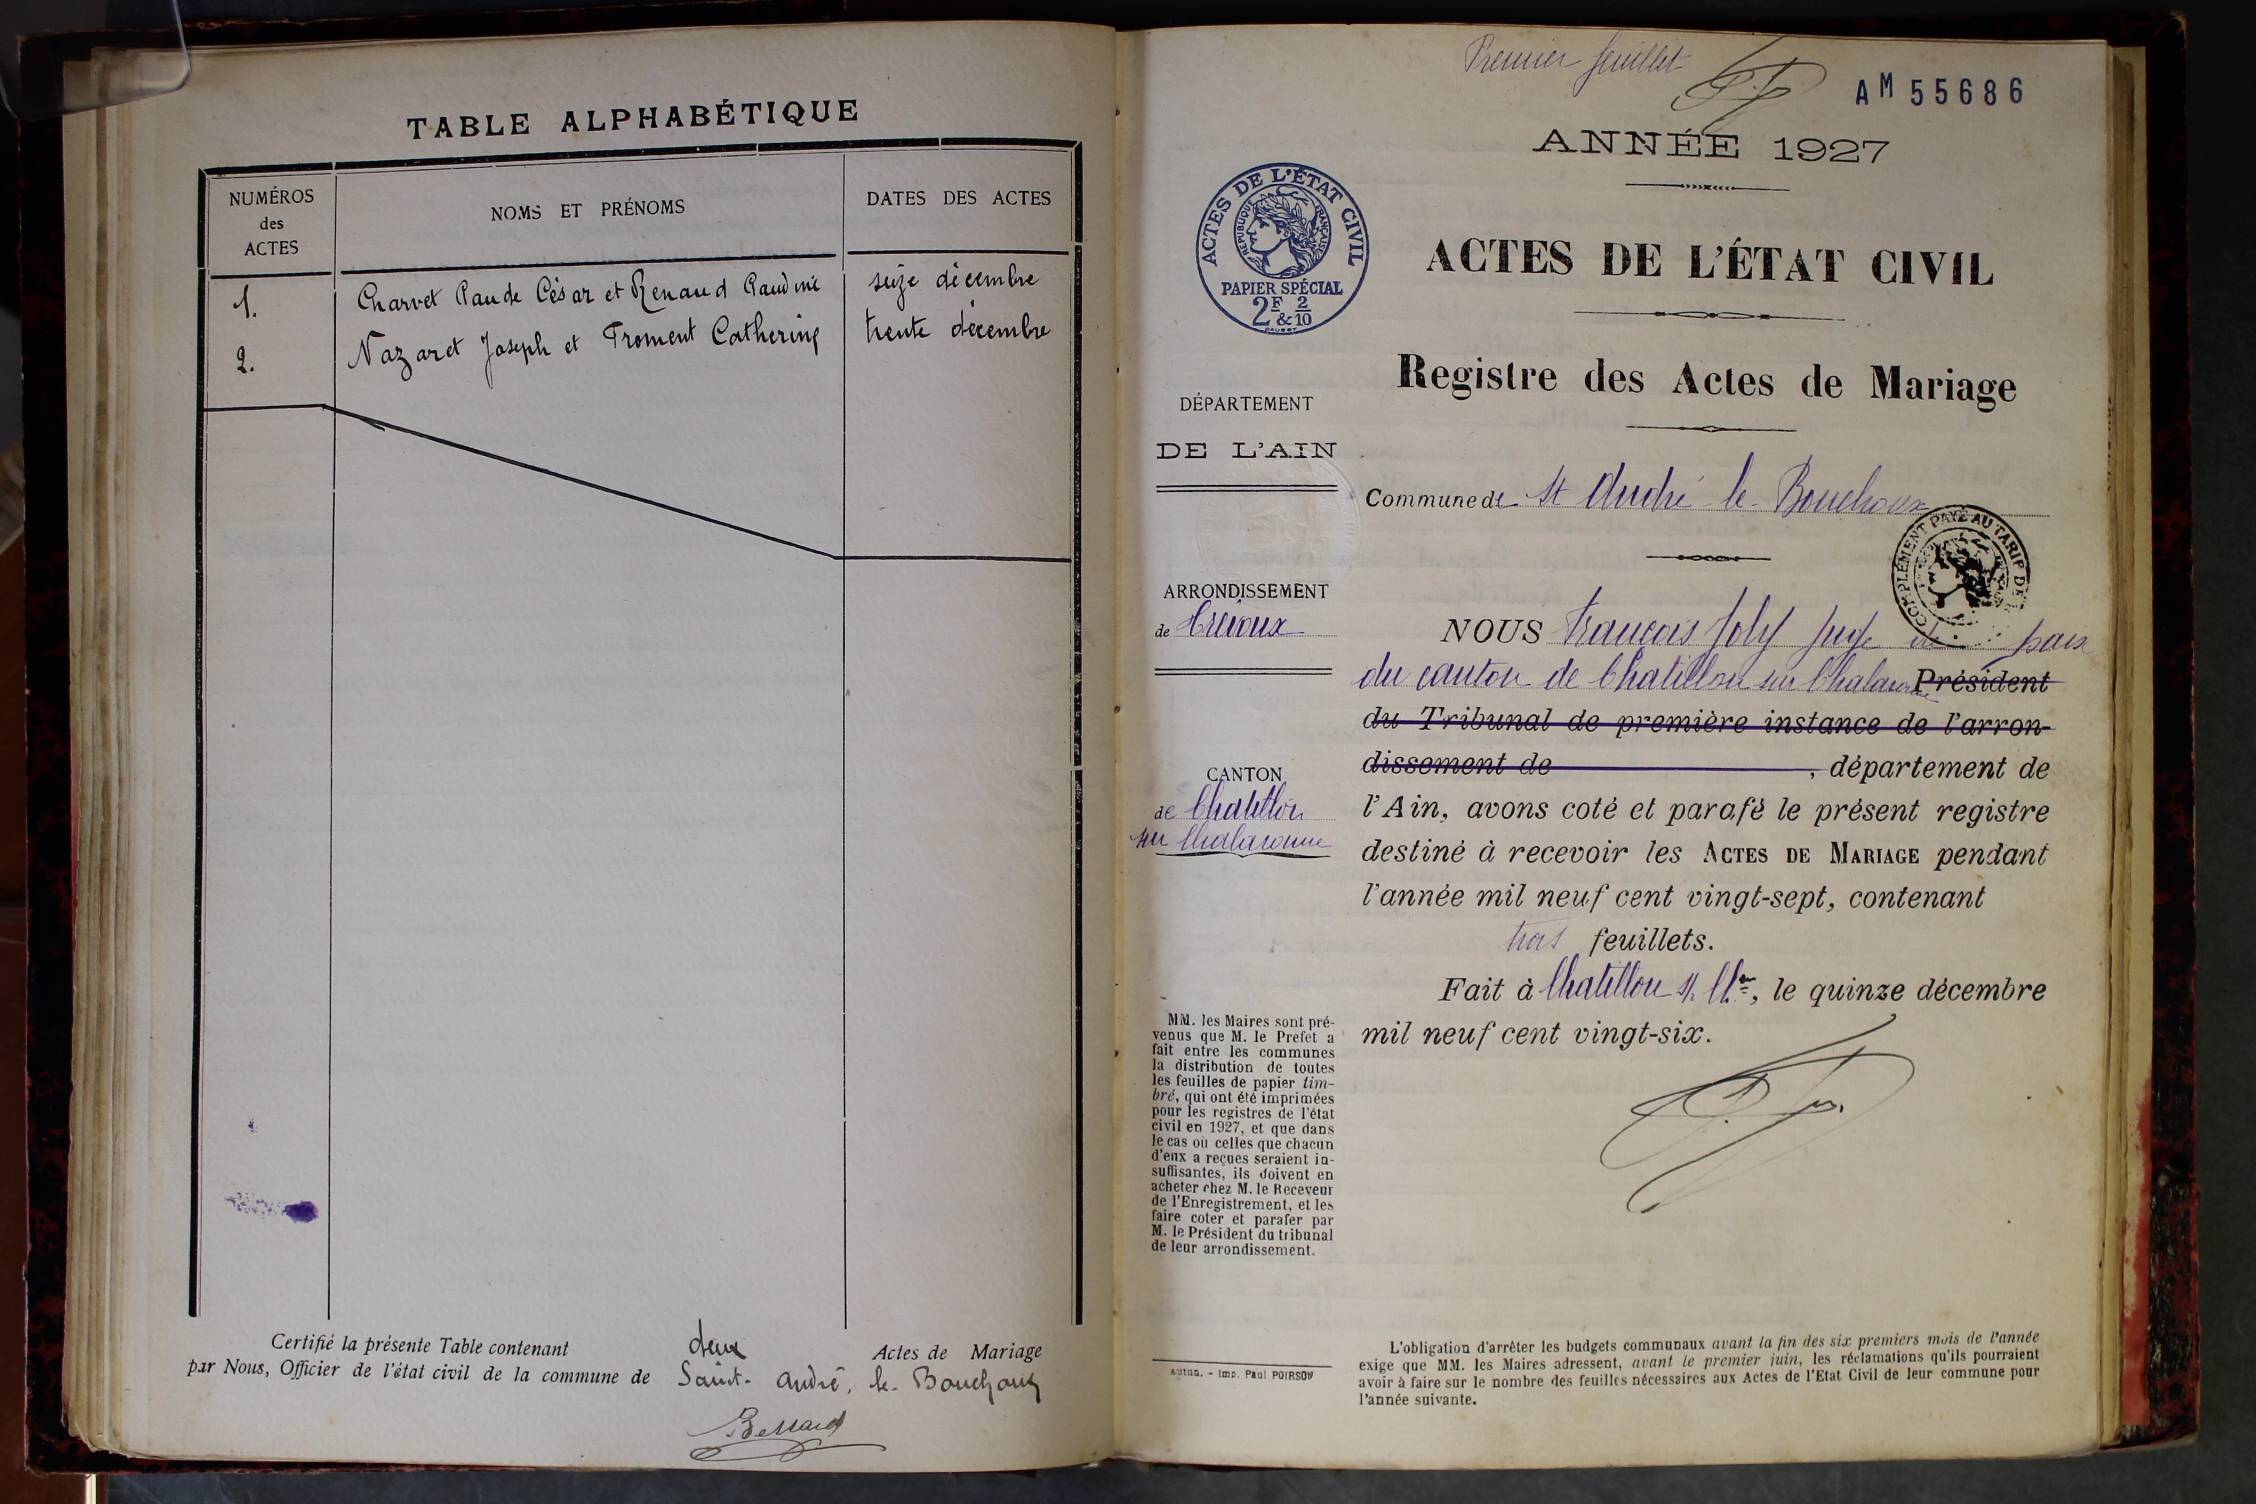 TABLE ALPHABÉTIQUE
NUMÉROS
des
ACTES
NOMS ET PRÉNOMS
DATES DES ACTES
1. Charvet Claude César et Renaud Claudine seize décembre
2. Nazaret Joseph et Froment Catherine trente décembre
Certifié la présente Table contenant deux Actes de Mariage
par Nous, Officier de l'état civil de la commune de Saint-André, le-Bouchoux
Bessard
Premier feuillet
AM 55686
ANNÉE 1927
ACTES DE L'ÉTAT CIVIL
RÉPUBLIQUE FRANÇAISE
PAPIER SPÉCIAL
2F & 2/10
ACTES DE L'ÉTAT CIVIL
Registre des Actes de Mariage
DÉPARTEMENT
DE L'AIN
Commune de St André le Bouchoux
COMPLÉMENT PAYÉ AU TARIF DE
ARRONDISSEMENT
de Trévoux
CANTON
de Chatillon
sur Chalaronne
NOUS François Joly Juge de paix
du canton de Chatillon sur Chalaronne Président
du Tribunal de première instance de l'arron-
dissement de , département de
l'Ain, avons coté et parafé le présent registre
destiné à recevoir les ACTES DE MARIAGE pendant
l'année mil neuf cent vingt-sept, contenant
trois feuillets.
Fait à Chatillon s/ Ch.ne, le quinze décembre
mil neuf cent vingt-six.
MM. les Maires sont pré-
venus que M. le Prefet a
fait entre les communes
la distribution de toutes
les feuilles de papier tim-
bré, qui ont été imprimées
pour les registres de l'état
civil en 1927, et que dans
le cas où celles que chacun
d'eux a reçues seraient in-
suffisantes, ils doivent en
acheter chez M. le Receveur
de l'Enregistrement, et les
faire coter et parafer par
M. le Président du tribunal
de leur arrondissement.
Autun. - Imp. Paul POIRSON
L'obligation d'arrêter les budgets communaux avant la fin des six premiers mois de l'année
exige que MM. les Maires adressent, avant le premier juin, les réclamations qu'ils pourraient
avoir à faire sur le nombre des feuilles nécessaires aux Actes de l'Etat Civil de leur commune pour
l'année suivante.